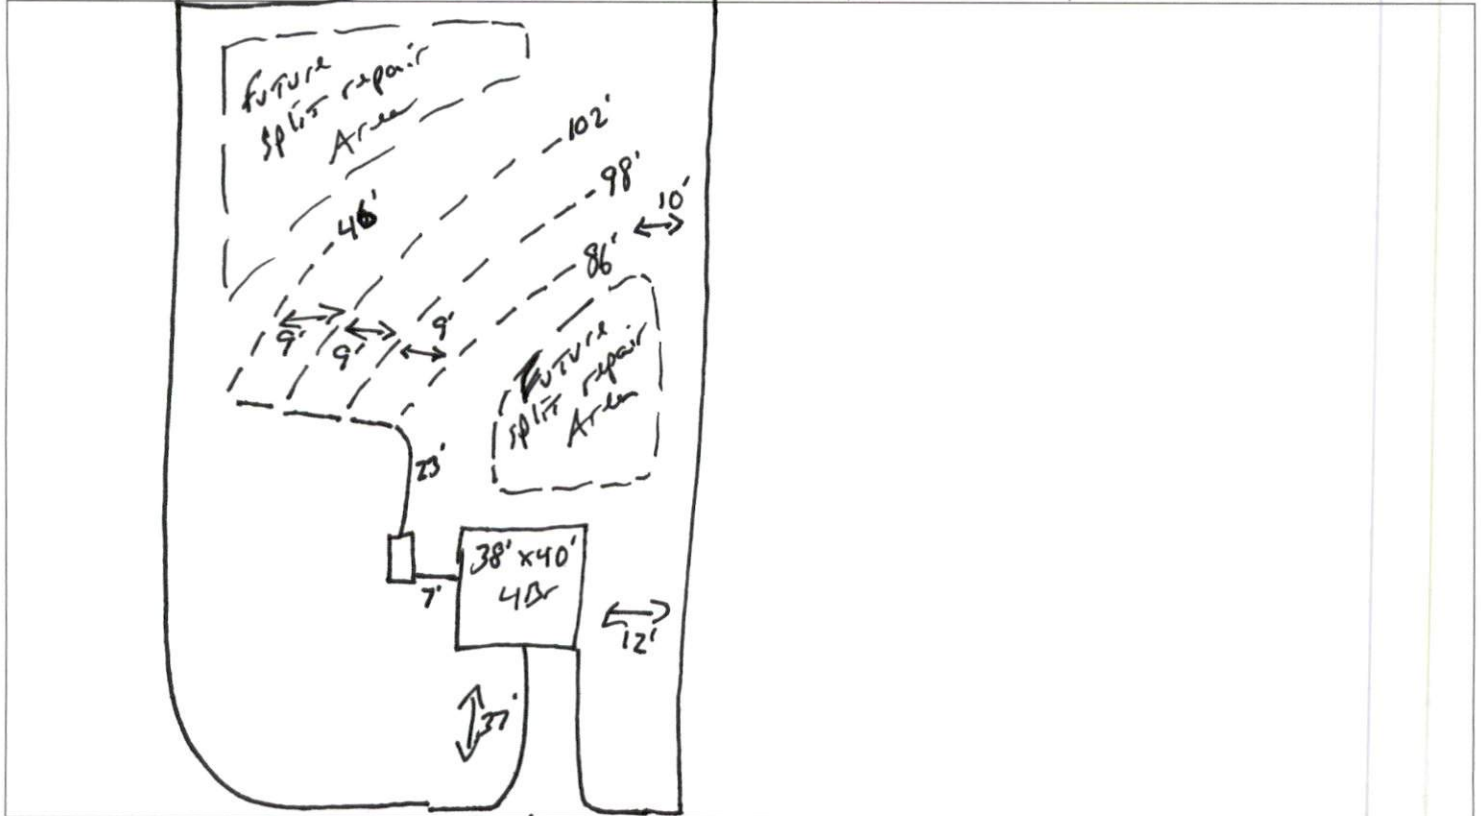 Future
split repair
Area
102'
98'
10'
46'
86'
9'
9'
9'
Future
split repair
Area
23'
38' x 40'
4Br
7'
12'
37'